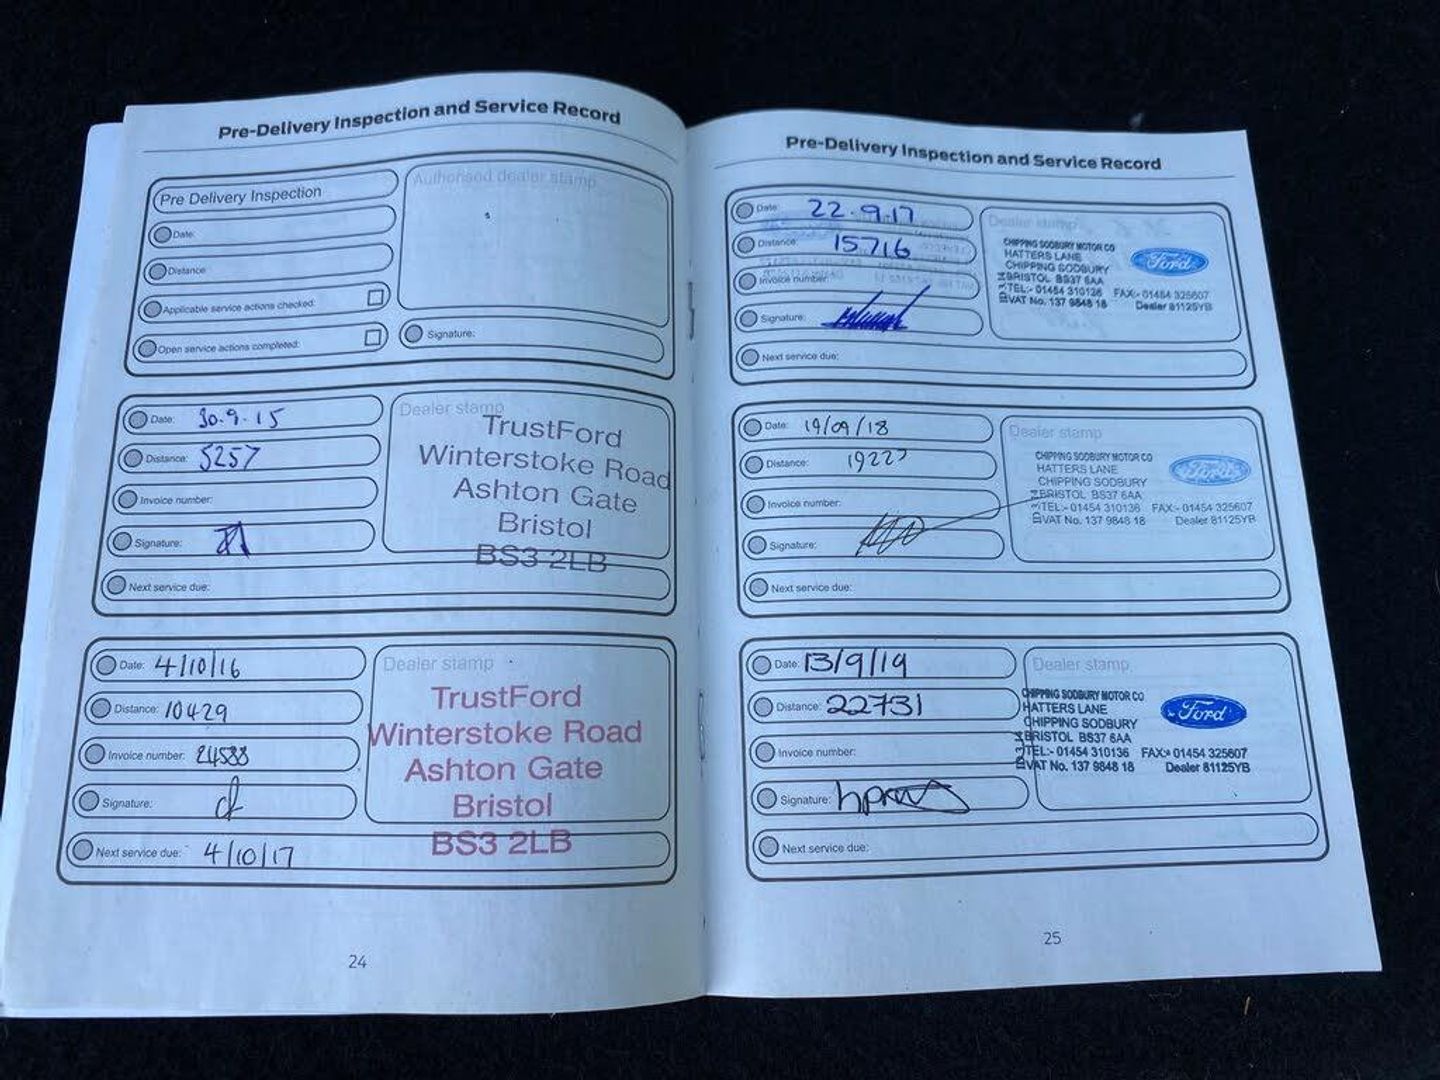 Pre-Delivery Inspection and Service Record
Pre Delivery Inspection
Authorised dealer stamp
Date:
Distance:
Applicable service actions checked:
Open service actions completed:
Signature:
Date: 30.9.15
Distance: 5257
Invoice number:
Signature:
Next service due:
Dealer stamp
TrustFord
Winterstoke Road
Ashton Gate
Bristol
BS3 2LB
Date: 4/10/16
Distance: 10429
Invoice number: 24588
Signature:
Next service due: 4/10/17
Dealer stamp
TrustFord
Winterstoke Road
Ashton Gate
Bristol
BS3 2LB
24
Pre-Delivery Inspection and Service Record
Date: 22.9.17
Distance: 15716
Invoice number:
Signature:
Next service due:
Dealer stamp
CHIPPING SODBURY MOTOR CO
HATTERS LANE
CHIPPING SODBURY
BRISTOL BS37 6AA
TEL:- 01454 310136 FAX:- 01454 325607
VAT No. 137 9848 18 Dealer 81125YB
Ford
Date: 19/09/18
Distance: 19223
Invoice number:
Signature:
Next service due:
Dealer stamp
CHIPPING SODBURY MOTOR CO
HATTERS LANE
CHIPPING SODBURY
BRISTOL BS37 6AA
TEL:- 01454 310136 FAX:- 01454 325607
VAT No. 137 9848 18 Dealer 81125YB
Ford
Date: 13/9/19
Distance: 22731
Invoice number:
Signature:
Next service due:
Dealer stamp
CHIPPING SODBURY MOTOR CO
HATTERS LANE
CHIPPING SODBURY
BRISTOL BS37 6AA
TEL:- 01454 310136 FAX:- 01454 325607
VAT No. 137 9848 18 Dealer 81125YB
Ford
25